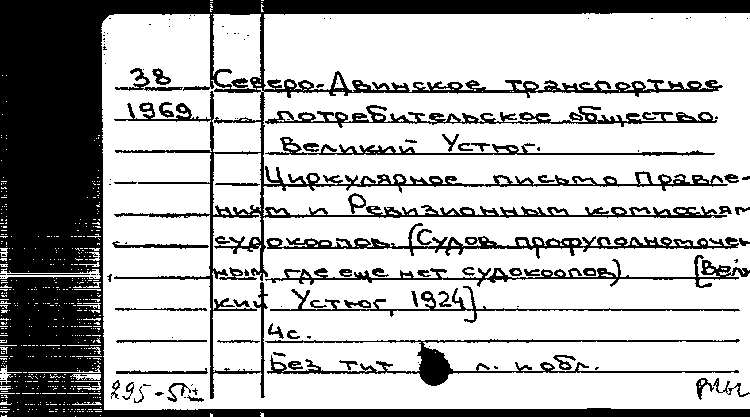 38 Северо-Двинское транспортное
1969 потребительское общество
Великий Устюг.
Циркулярное письмо Правле-
ниям и Ревизионным комиссиям
судокоопов. (Судов профуполномочен
ным, где еще нет судокоопов). [Вели
кий Устюг, 1924].
4с.
Без тит л. и обл.